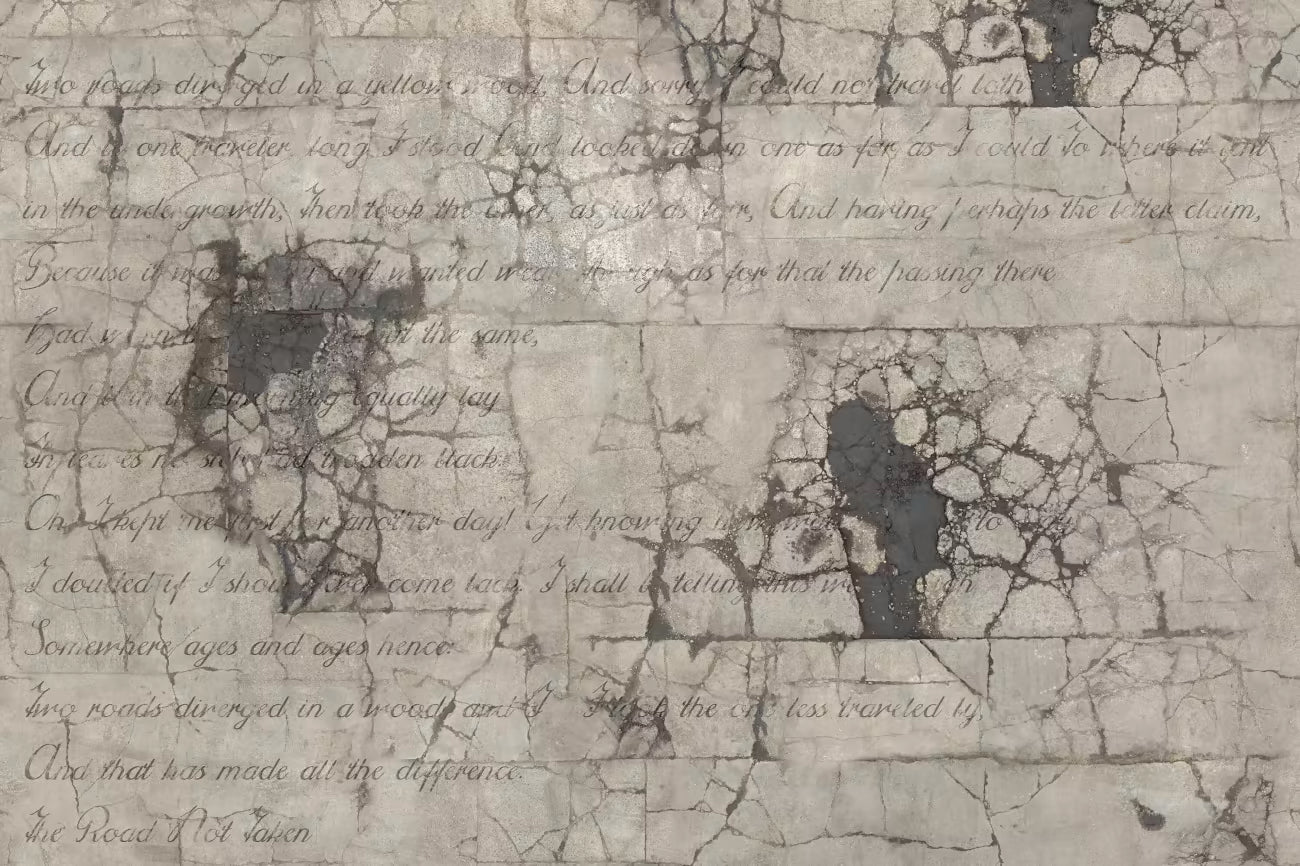 Two roads diverged in a yellow wood, And sorry I could not travel both
And be one traveler, long I stood And looked down one as far as I could To where it bent
in the undergrowth; Then took the other, as just as fair, And having perhaps the better claim,
Because it was and wanted wear; though as for that the passing there
Had the same,
And both that morning equally lay
In leaves no step had trodden black.
Oh, I kept the first for another day! Yet knowing how to
I doubted if I should ever come back. I shall be telling this with
Somewhere ages and ages hence:
Two roads diverged in a wood, and I I took the one less traveled by,
And that has made all the difference.
The Road Not Taken